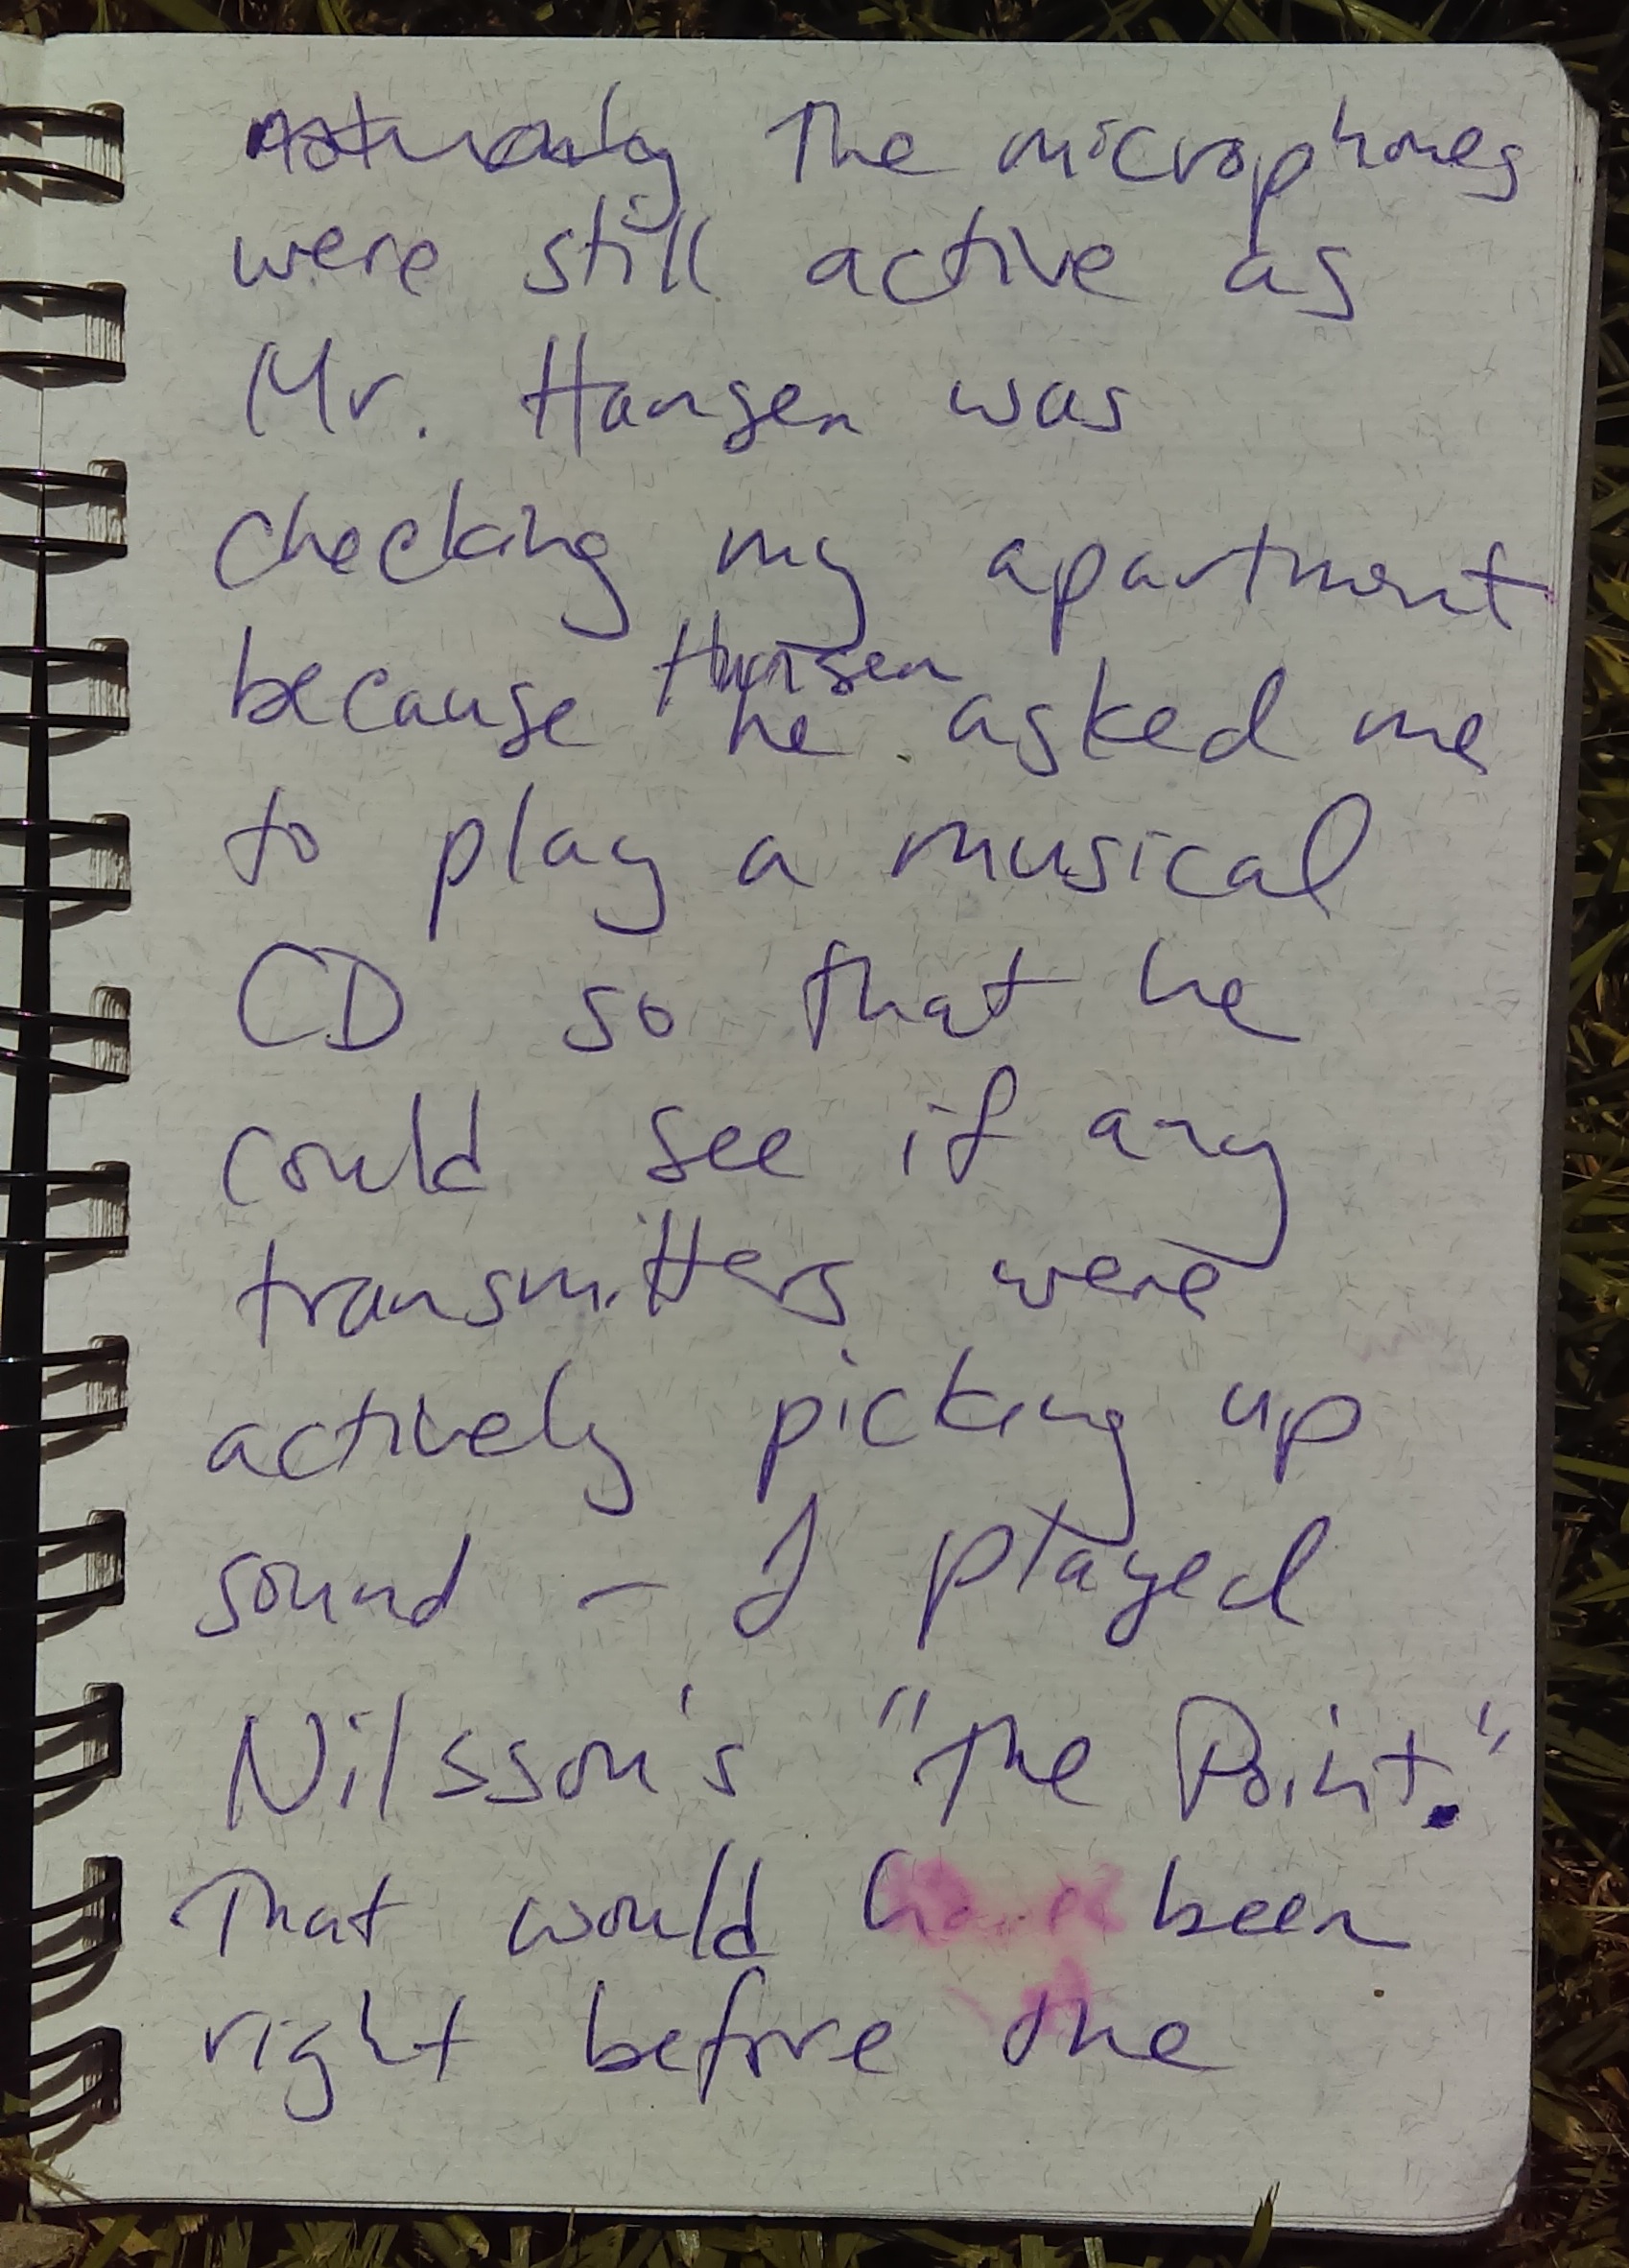 Actually The microphones
were still active as
Mr. Hansen was
checking my apartment
because Hansen he asked me
to play a musical
CD so that he
could see if any
transmitters were
actively picking up
sound – I played
Nilsson's "The Point."
That would have been
right before the